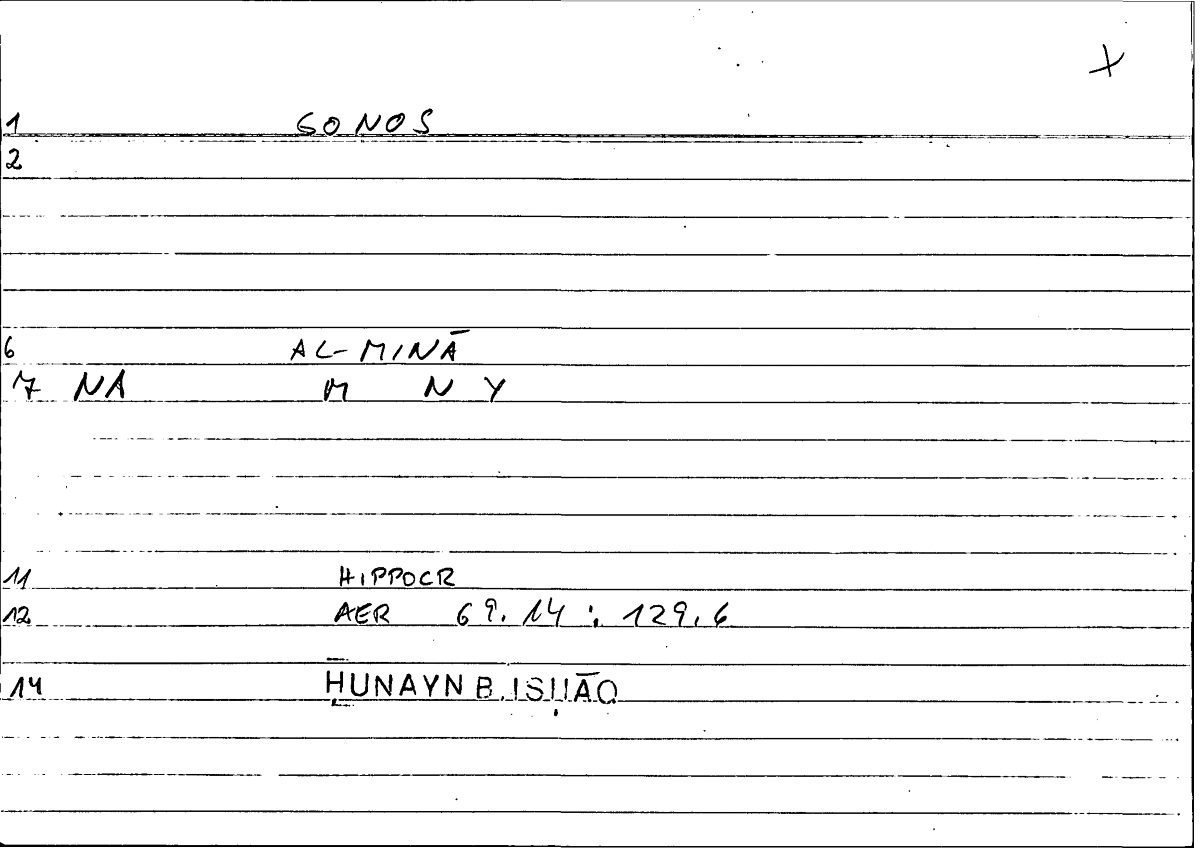 +
1 GONOS
2
6 AL-MINĀ
7 NA M N Y
11 HIPPOCR
12 AER 69.14 : 129.6
14 ḤUNAYN B. ISḤĀQ